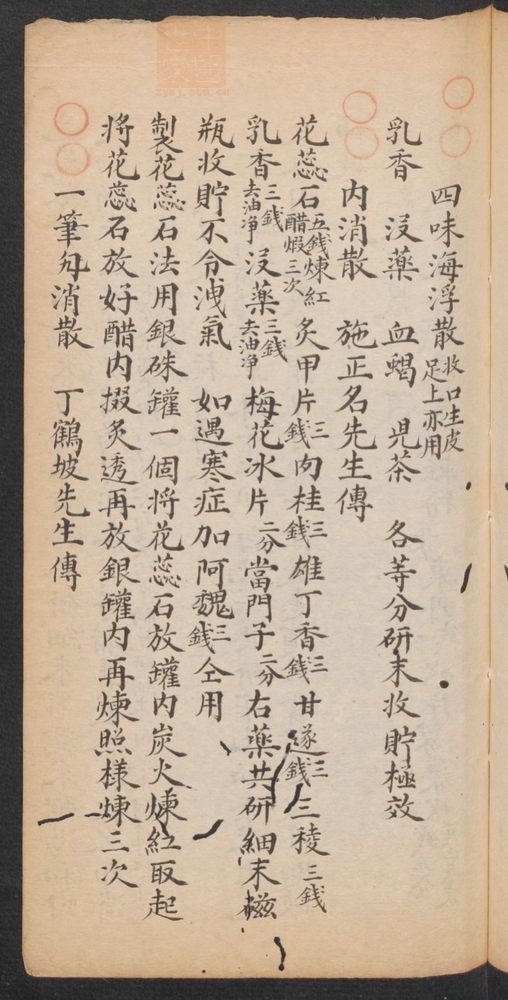 四味海浮散 收口生皮足上亦用
乳香 沒藥 血蝎 児茶 各等分研末收貯極效
內消散 施正名先生傳
花蕊石 五錢煉紅醋煆三次 炙甲片 三錢 肉桂 三錢 雄丁香 三錢 甘遂 三錢 三稜 三錢
乳香 三錢去油净 沒藥 三錢去油净 梅花冰片 二分 當門子 二分 右藥共研細末磁
瓶收貯不令洩氣 如遇寒症加阿魏 三錢 仝用
製花蕊石法用銀硃罐一個將花蕊石放罐內炭火煉紅取起
將花蕊石放好醋內掇炙透再放銀罐內再煉照樣煉三次
一筆勾消散 丁鶴坡先生傳